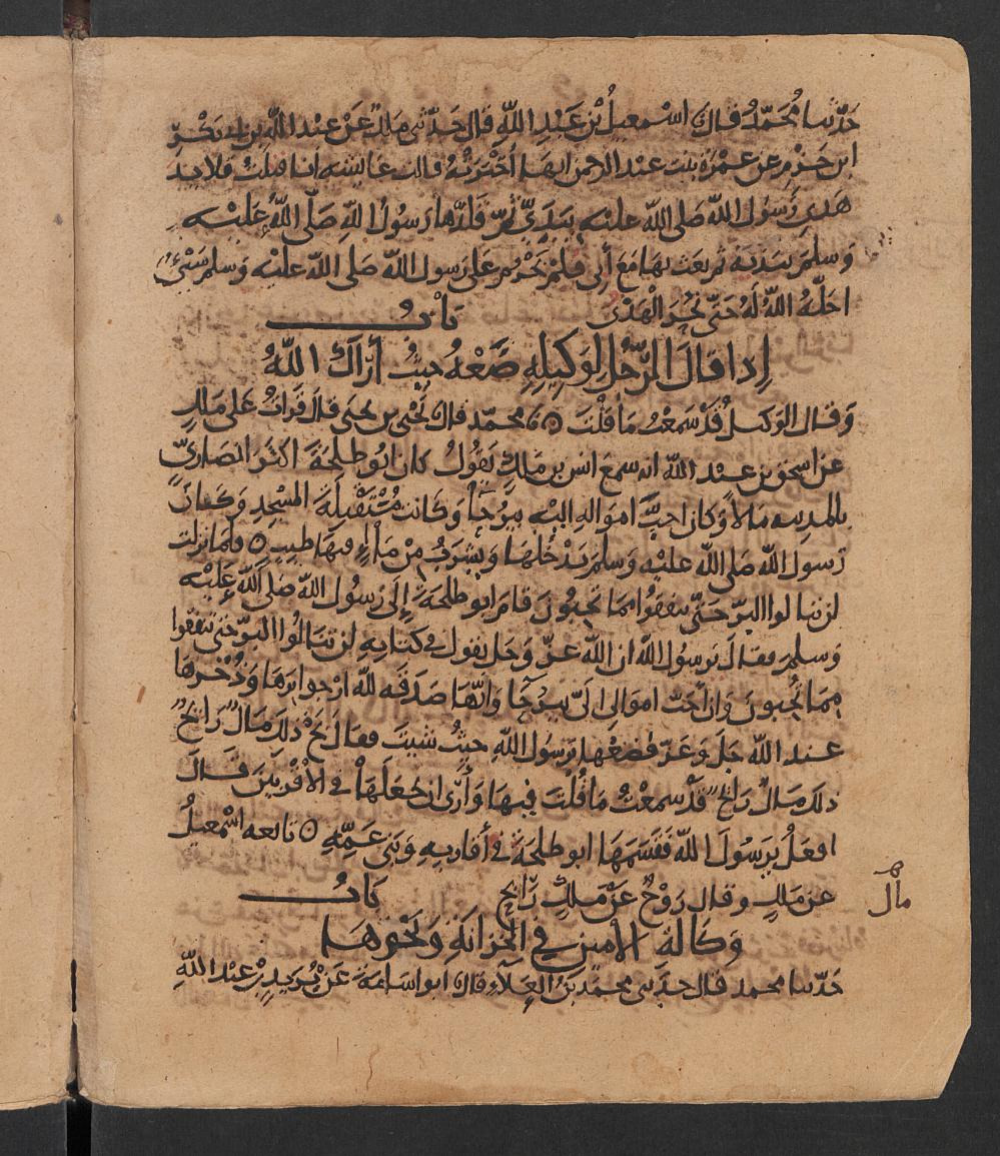 حدثنا محمد قال اسمعيل بن عبد الله قال حدثني ملك عن عبد الله بن ابي بكر
ابن حزم عن عمرة بنت عبد الرحمن انها اخبرته قالت عائشه انا فتلت قلايد
هدي رسول الله صلى الله عليه بيدي ثم قلدها رسول الله صلى الله عليه
وسلم بيديه ثم بعث بها مع أبي فلم يحرم على رسول الله صلى الله عليه وسلم شيئ
احله الله له حتى نحر الهدي باب
إذا قال الرجل لوكيله ضعه حيث أراك الله
وقال الوكيل قد سمعت ما قلت محمد قال يحيى بن يحيى قال قرات على ملك
عن اسحق بن عبد الله انه سمع انس بن ملك يقول كان ابو طلحة اكثر انصاري
بالمدينه مالا وكان احب امواله اليه بيرحا وكانت مستقبلة المسجد وكان
رسول الله صلى الله عليه وسلم يدخلها ويشرب من ماء فيها طيب ه فلما نزلت
لن تنالوا البر حتى تنفقوا مما تحبون قام ابو طلحة إلى رسول الله صلى الله عليه
وسلم فقال يرسول الله ان الله عز وجل يقول في كتابه لن تنالوا البر حتى تنفقوا
مما تحبون وان أحب اموالي الي بيرحا وانها صدقه لله ارجوا برها وذخرها
عند الله جل وعز فضعها يرسول الله حيث شيت فقال بخ ذلك مال رائح
ذلك مال رائح قد سمعت ما قلت فيها وأرى ان تجعلها في الاقربين قال
افعل يرسول الله فقسمها ابو طلحة في أقاربه وبني عمه ه تابعه اسمعيل
عن ملك وقال روح عن ملك رابح باب
مال
وكالة الامين في الخزانة ونحوها
حدثنا محمد قال حدثني محمد بن العلاء قال ابو اسامة عن بريد بن عبد الله